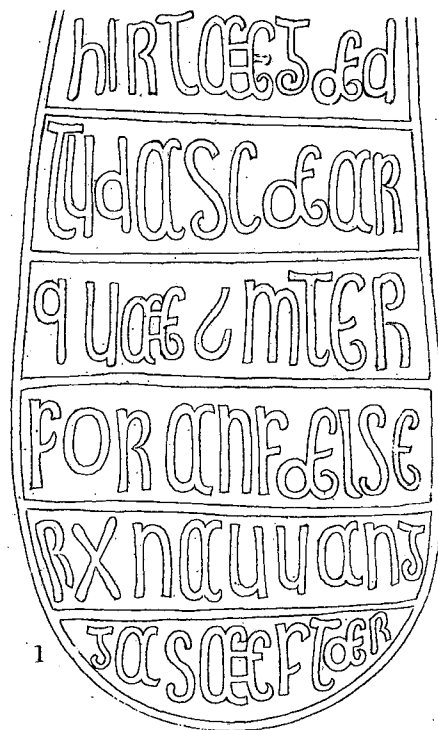 hIRTægæd
TydasCæaR
quæ ¿ mTER
FORanFæISE
RXnauuang
gaSæFTæR
1